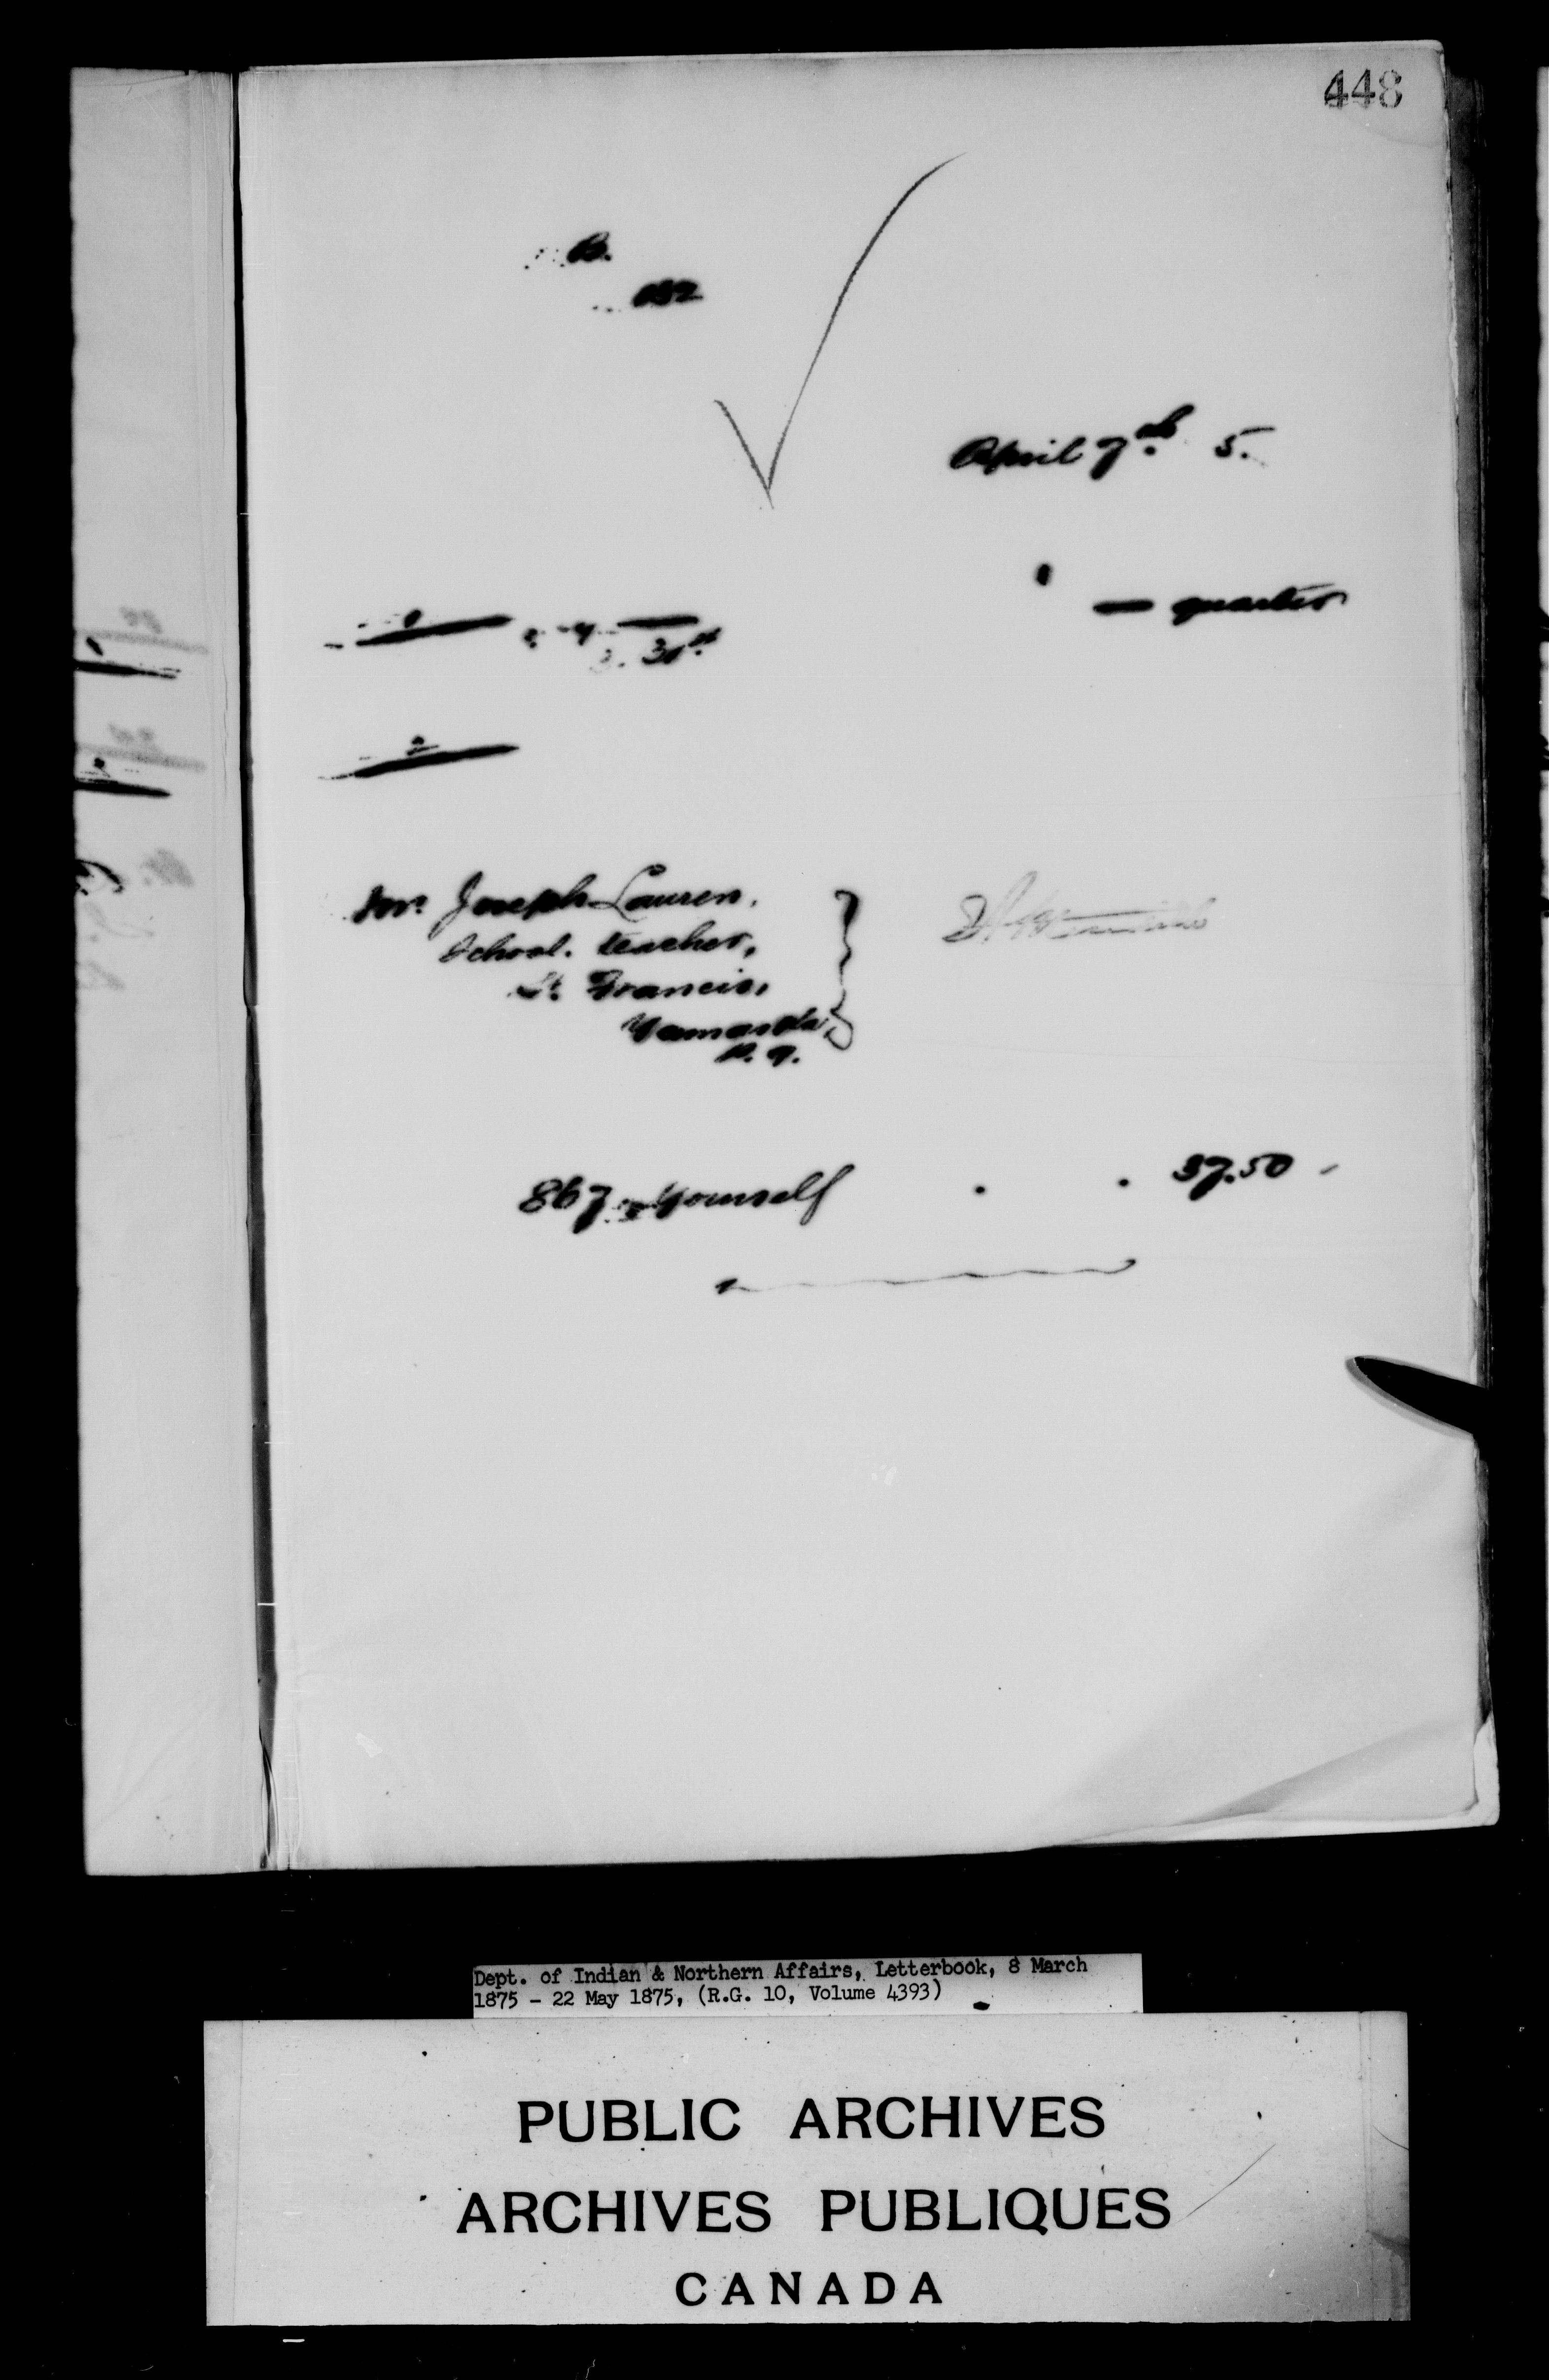 448
B.
April 7th 5.
quarter
31st
Mr. Joseph Lauren,
School teacher,
St. Francis,
Yamaska,
P. Q.
867 Yourself . . 37.50
Dept. of Indian & Northern Affairs, Letterbook, 8 March
1875 - 22 May 1875, (R.G. 10, Volume 4393)
PUBLIC ARCHIVES
ARCHIVES PUBLIQUES
CANADA